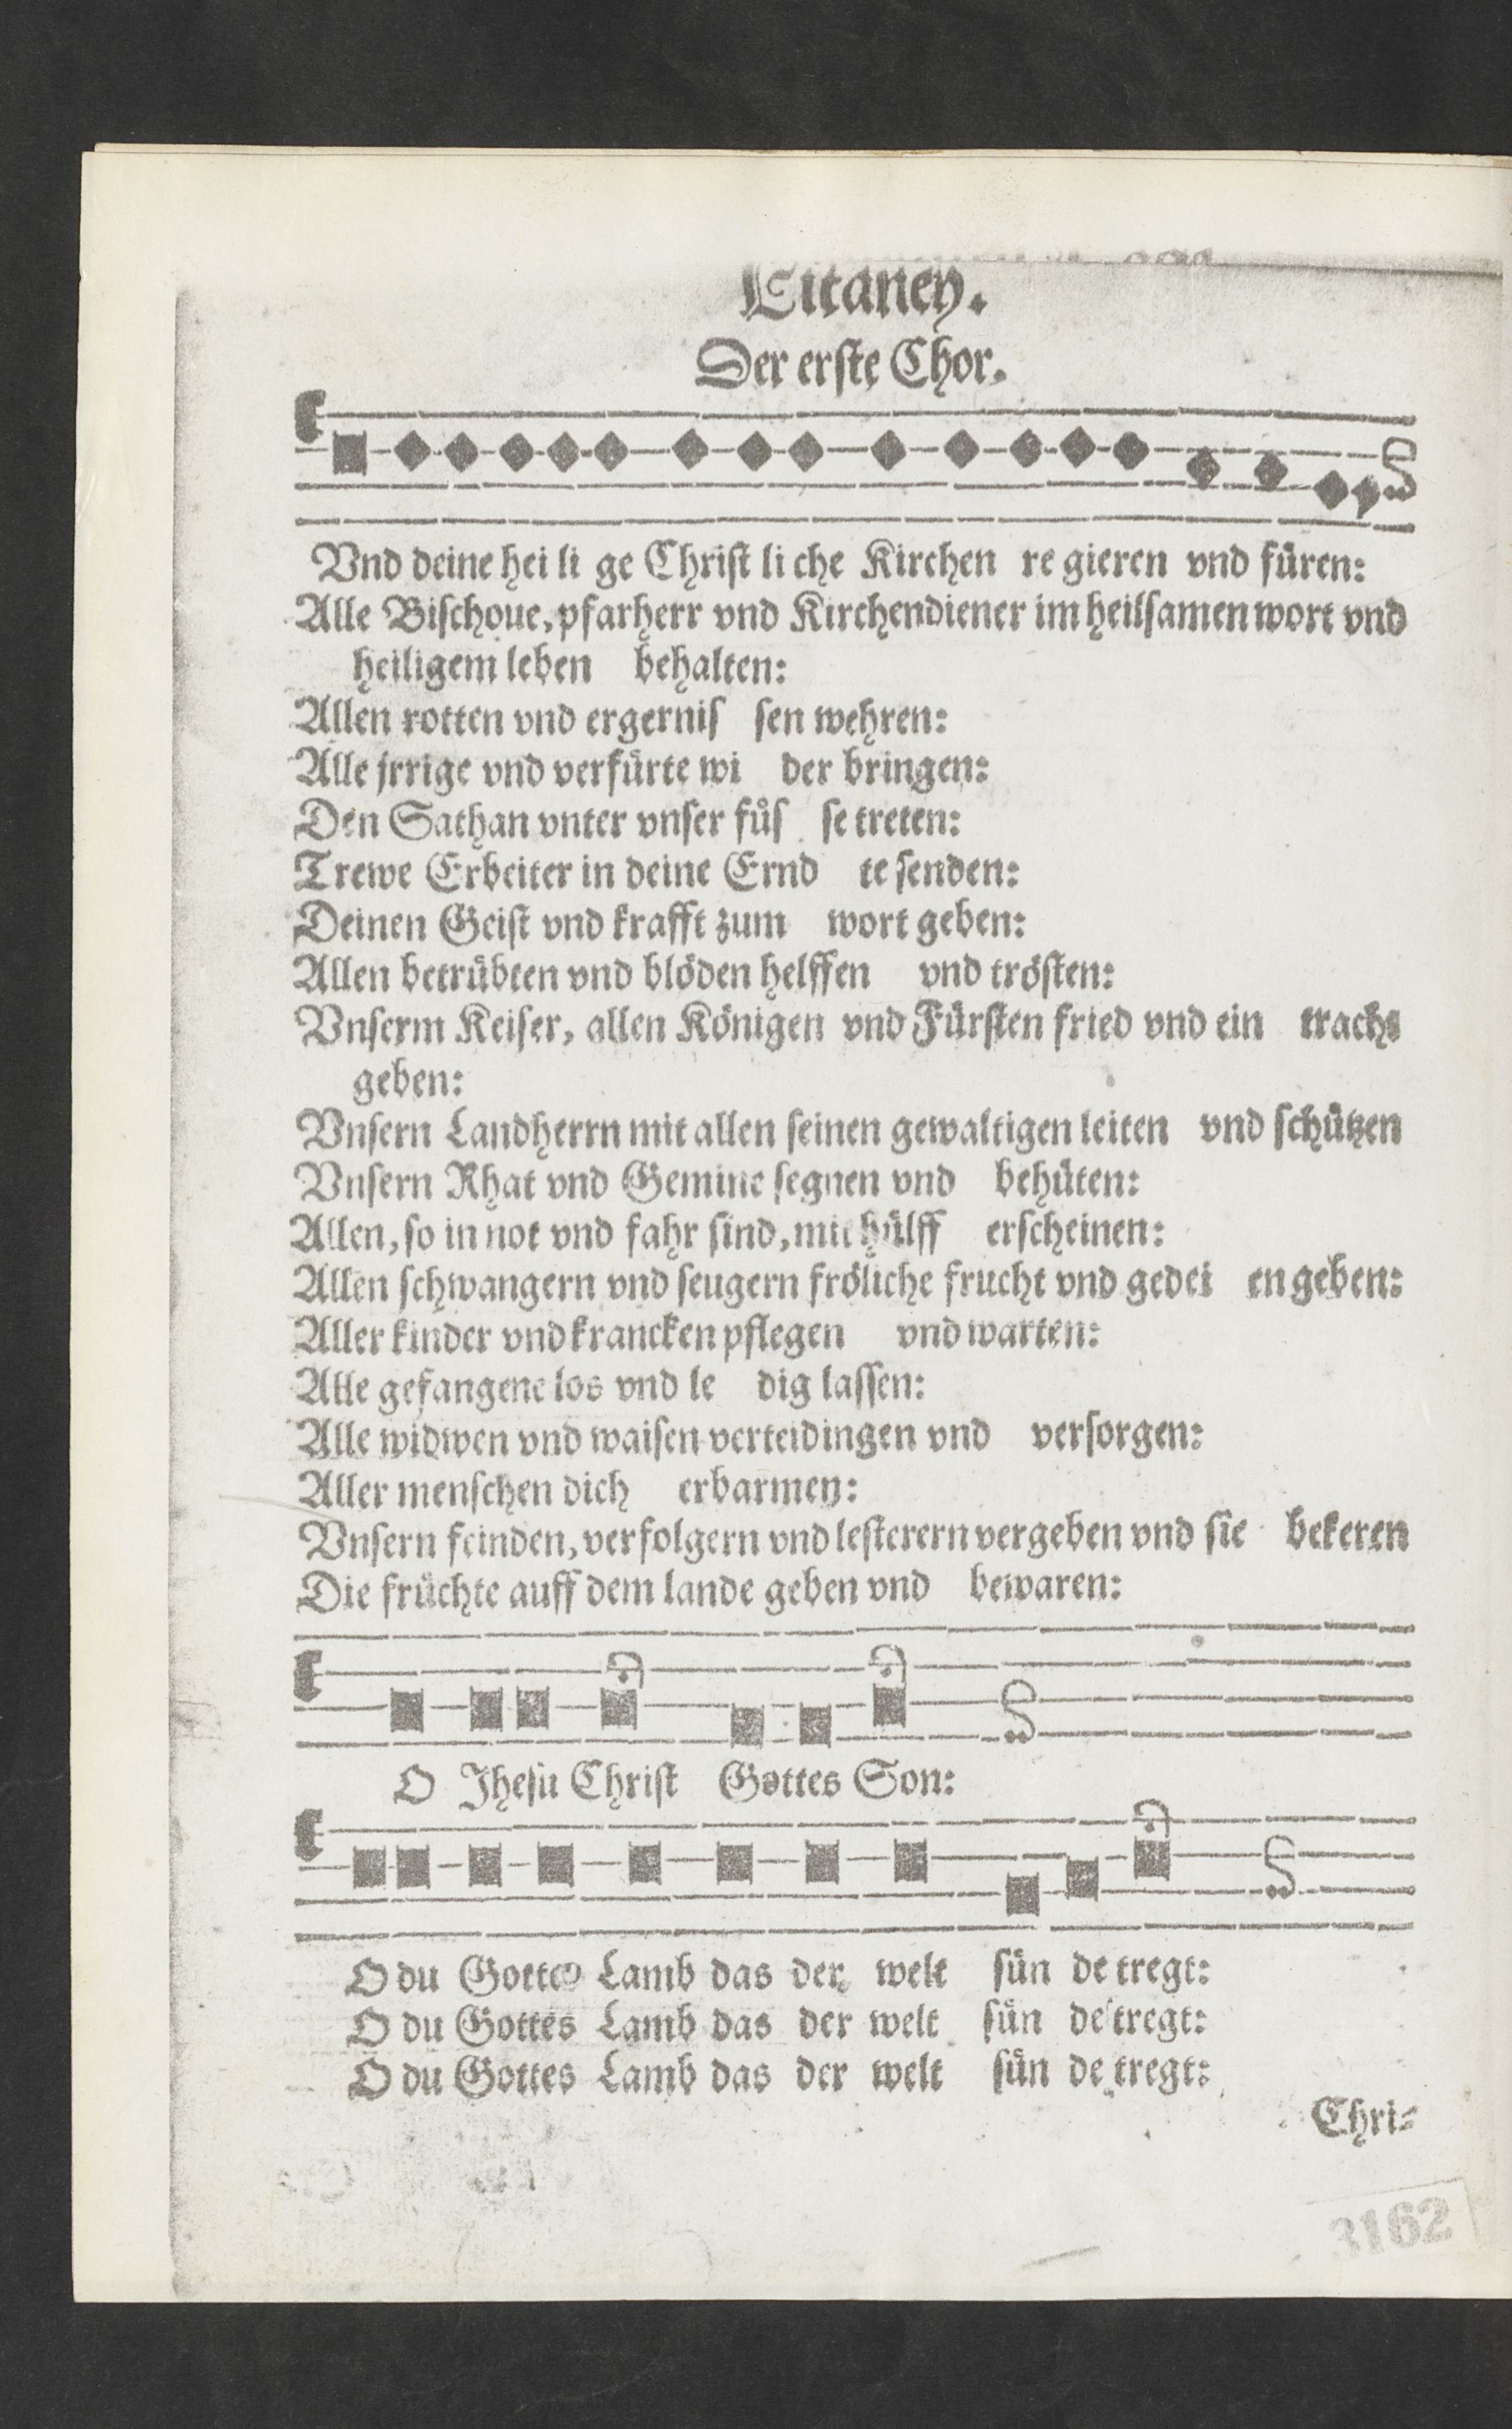 Litaney.
Der erste Chor.
Vnd deine hei li ge Christ li che Kirchen re gieren vnd füren:
Alle Bischoue, pfarherr vnd Kirchendiener im heilsamen wort vnd
heiligem leben behalten:
Allen rotten vnd ergernis sen wehren:
Alle jrrige vnd verfürte wi der bringen:
Den Sathan vnter vnser füs se treten:
Trewe Erbeiter in deine Ernd te senden:
Deinen Geist vnd krafft zum wort geben:
Allen betrübten vnd blöden helffen vnd trösten:
Vnserm Keiser, allen Königen vnd Fürsten fried vnd ein tracht
geben:
Vnsern Landherrn mit allen seinen gewaltigen leiten vnd schützen
Vnsern Rhat vnd Gemine segnen vnd behüten:
Allen, so in not vnd fahr sind, mit hülff erscheinen:
Allen schwangern vnd seugern fröliche frucht vnd gedei en geben:
Aller kinder vnd krancken pflegen vnd warten:
Alle gefangene los vnd le dig lassen:
Alle widwen vnd waisen verteidingen vnd versorgen:
Aller menschen dich erbarmen:
Vnsern feinden, verfolgern vnd lesterern vergeben vnd sie bekeren
Die früchte auff dem lande geben vnd bewaren:
O Jhesu Christ Gottes Son:
O du Gottes Lamb das der welt sün de tregt:
O du Gottes Lamb das der welt sün de tregt:
O du Gottes Lamb das der welt sün de tregt:
Chri-
3162